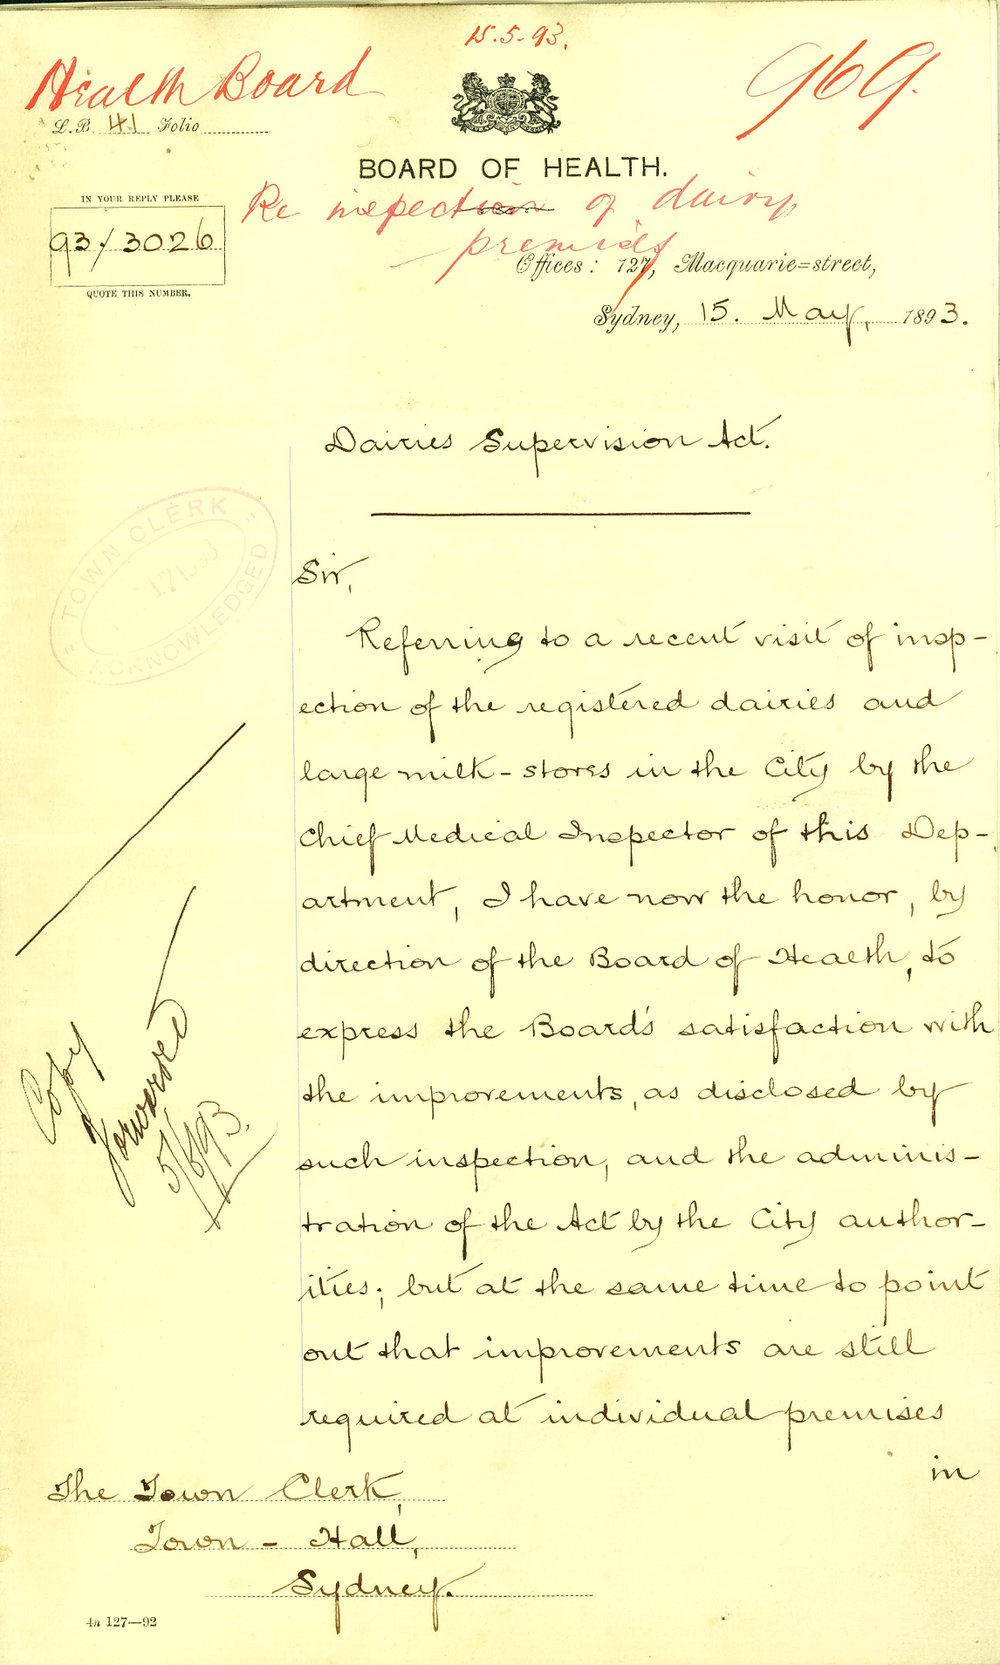 15.5.93.
Health Board
969.
L.B. 41 Folio
BOARD OF HEALTH.
IN YOUR REPLY PLEASE
93/3026
QUOTE THIS NUMBER.
Re inspection of dairy
premises
Offices: 127, Macquarie=street,
Sydney, 15. May, 1893.
Dairies Supervision Act.
"TOWN CLERK"
ACKNOWLEDGED
Sir,
Referring to a recent visit of insp-
ection of the registered dairies and
large milk-stores in the City by the
Chief Medical Inspector of this Dep-
artment, I have now the honor, by
direction of the Board of Health, to
express the Board's satisfaction with
the improvements, as disclosed by
such inspection, and the adminis-
tration of the Act by the City author-
ities; but at the same time to point
out that improvements are still
required at individual premises
in
Copy
forwarded
5/6/93.
The Town Clerk,
Town-Hall,
Sydney.
4a 127—92